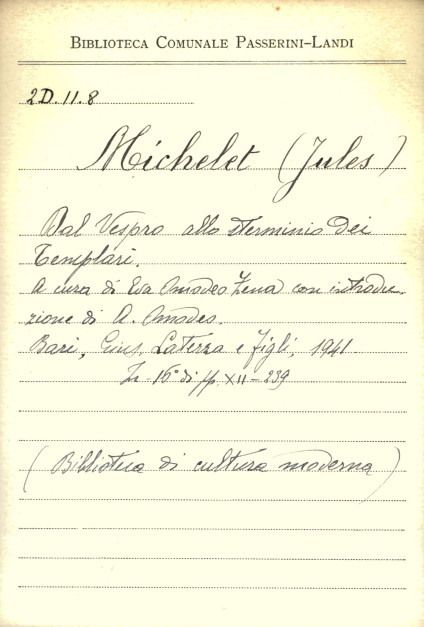 BIBLIOTECA COMUNALE PASSERINI-LANDI
2D.11.8
Michelet (Jules)
Dal Vespro allo sterminio dei
Templari.
A cura di Eva Amadeo Zena con introdu-
zione di A. Amadeo.
Bari, Gius. Laterza e figli, 1941
In 16° di pp. XII-239
(Biblioteca di cultura moderna)